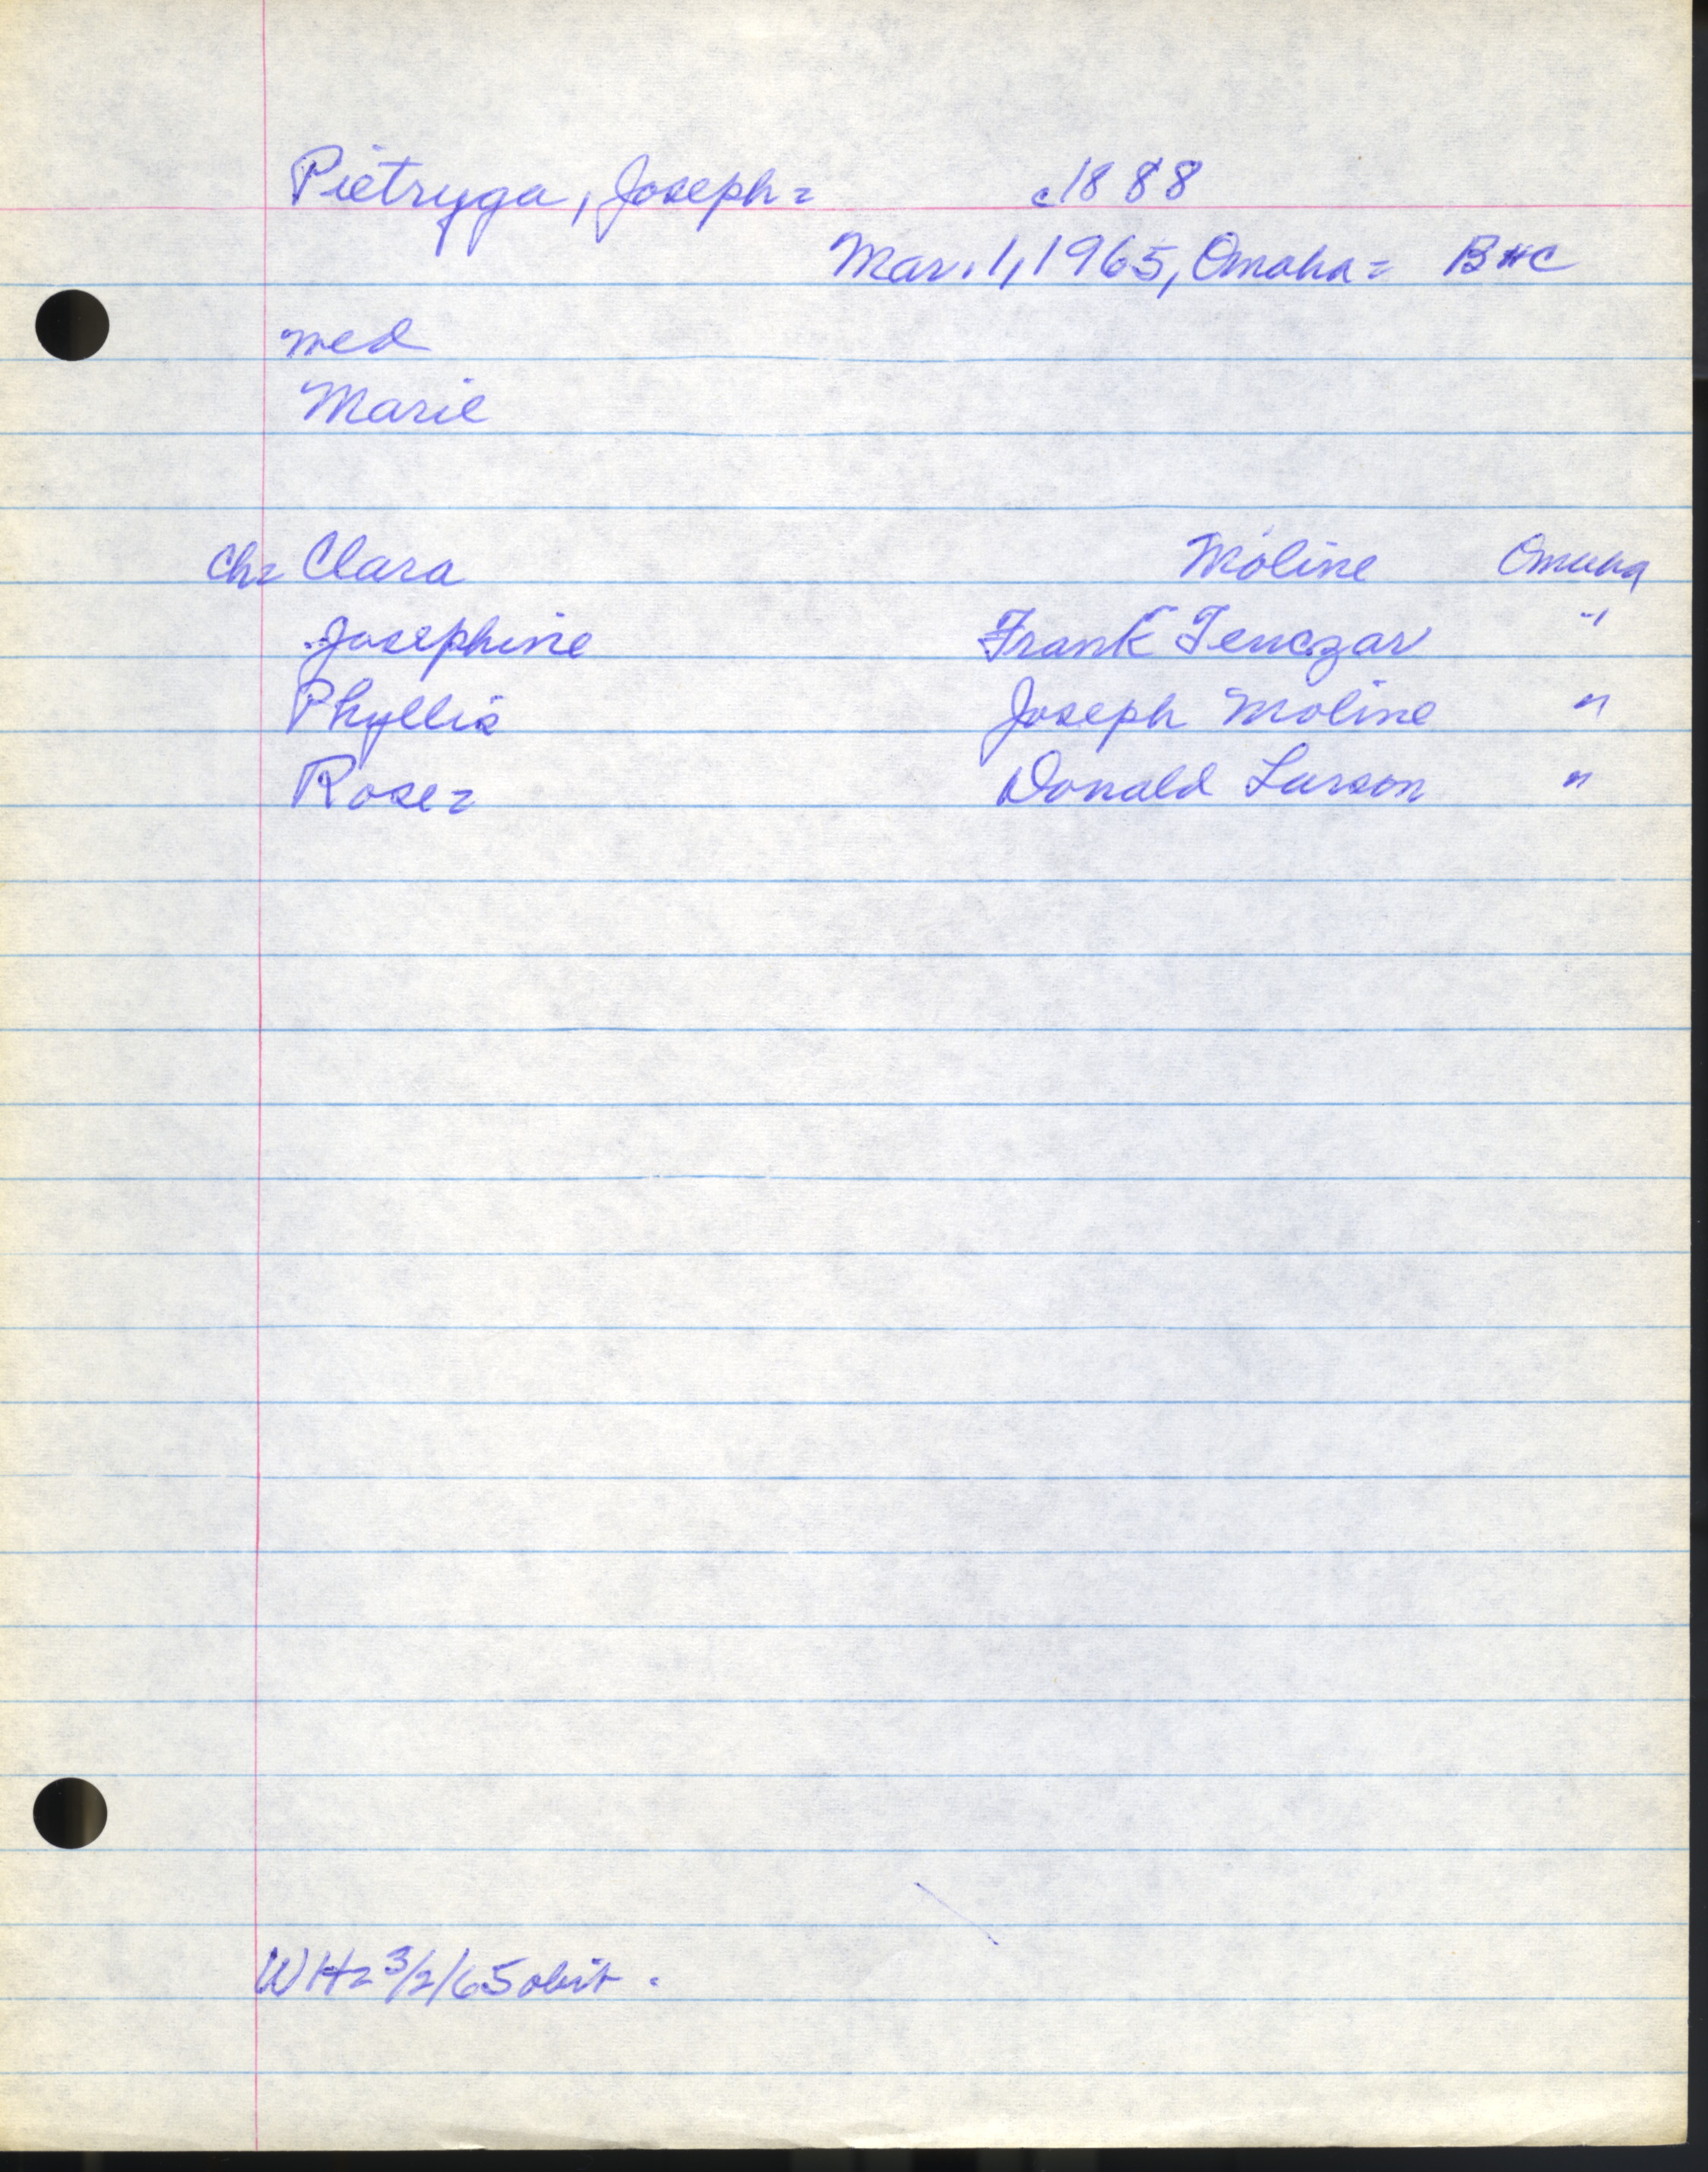 Pietryga, Joseph = c1888
Mar. 1, 1965, Omaha = BHC
med
Marie
Ch = Clara Moline Omaha
Josephine Frank Tenczar "
Phyllis Joseph Moline "
Rose = Donald Larson "
WH = 3/2/65 obit.